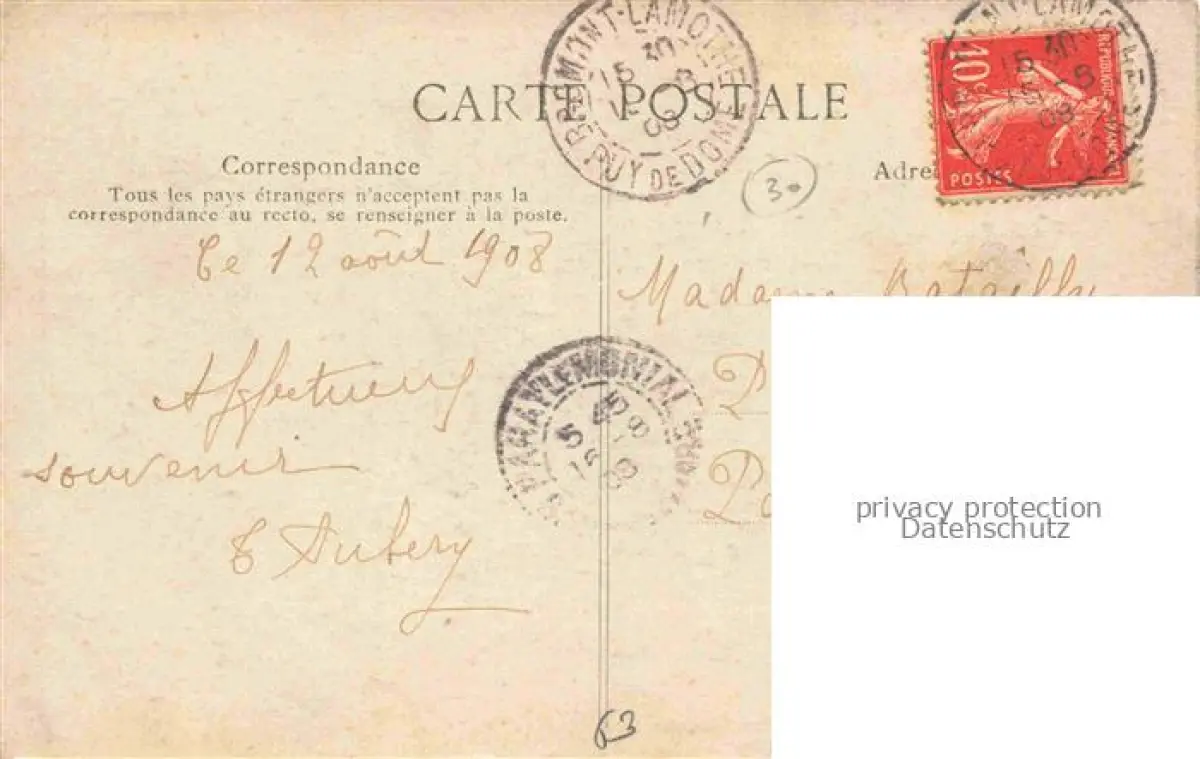 CARTE POSTALE
BROMONT-LAMOTHE
PUY DE DOME
15 30
15 -8
08
10c
RÉPUBLIQUE FRANÇAISE
POSTES
30
Correspondance
Tous les pays étrangers n'acceptent pas la
correspondance au recto, se renseigner à la poste.
Adre
Ce 12 août 1908
Affectueux
souvenir
Aubery
Madame Batailly
PARAY LE MONIAL
63
privacy protection
Datenschutz